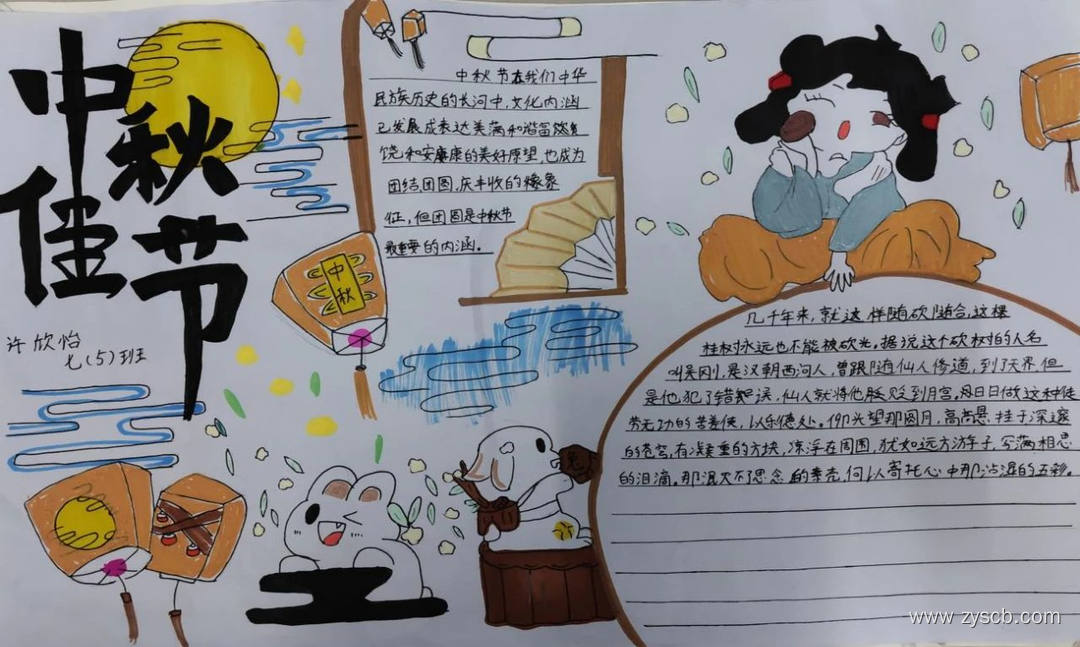 中秋佳节
许欣怡
七(5)班
中秋节在我们中华
民族历史的长河中,文化内涵
已发展成表达美满和谐富
饶和安康的美好愿望,也成为
团结团圆,庆丰收的象
征,但团圆是中秋节
最重要的内涵。
中秋
几千年来,就这样随砍随合,这棵
桂树永远也不能被砍光。据说这个砍树的人名
叫吴刚,是汉朝西河人,曾跟随仙人修道,到了天界,但
是他犯了错误,仙人就将他贬到月宫,日日做这种徒
劳无功的苦差使,以示惩处。仰望那圆月,高高悬挂于深邃
的苍穹,有凝重的方块,漂浮在周围,犹如远方游子,写满相思
的泪滴。那混天不了思念的素壳,何以寄托心中那沾湿的五彩。
www.zyscb.com